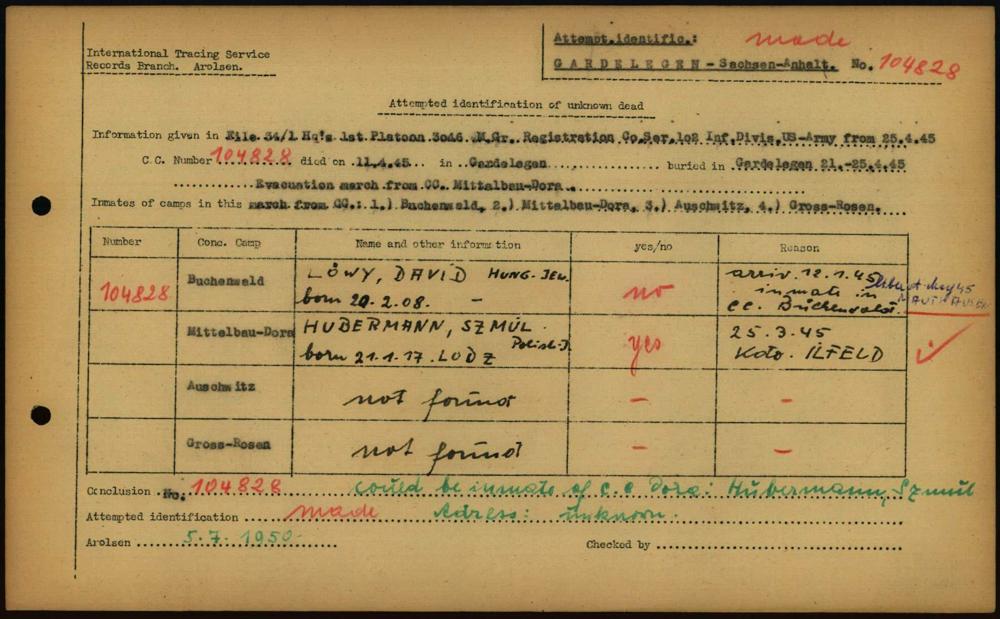 International Tracing Service
Records Branch. Arolsen.
Attempt.identific.: made
GARDELEGEN - Sachsen-Anhalt. No. 104828
Attempted identification of unknown dead
Information given in File 34/1 Hq's 1st.Platoon 3046. M.Gr. Registration Co.Ser.102 Inf.Divis.US-Army from 25.4.45
C.C. Number 104828 died on 11.4.45 in Gardelegen buried in Gardelegen 21.-25.4.45
Evacuation march from CC. Mittelbau-Dora.
Inmates of camps in this march from CC.: 1.) Buchenwald, 2.) Mittelbau-Dora, 3.) Auschwitz, 4.) Gross-Rosen.
Number Conc. Camp Name and other information yes/no Reason
104828 Buchenwald LÖWY, DAVID HUNG-JEW. born 20.2.08. - no arriv. 12.1.45 inmate in CC. Buchenwald. May 45 MAUTHAUSEN
Mittelbau-Dora HUBERMANN, SZMUL Polish-J. born 21.1.17. LODZ yes 25.3.45 Kdo. ILFELD
Auschwitz not found - -
Gross-Rosen not found - -
Conclusion No. 104828 could be inmate of c.c Dora: Hubermann, Szmul
Attempted identification made Adress: unknown.
Arolsen 5.7.1950 Checked by